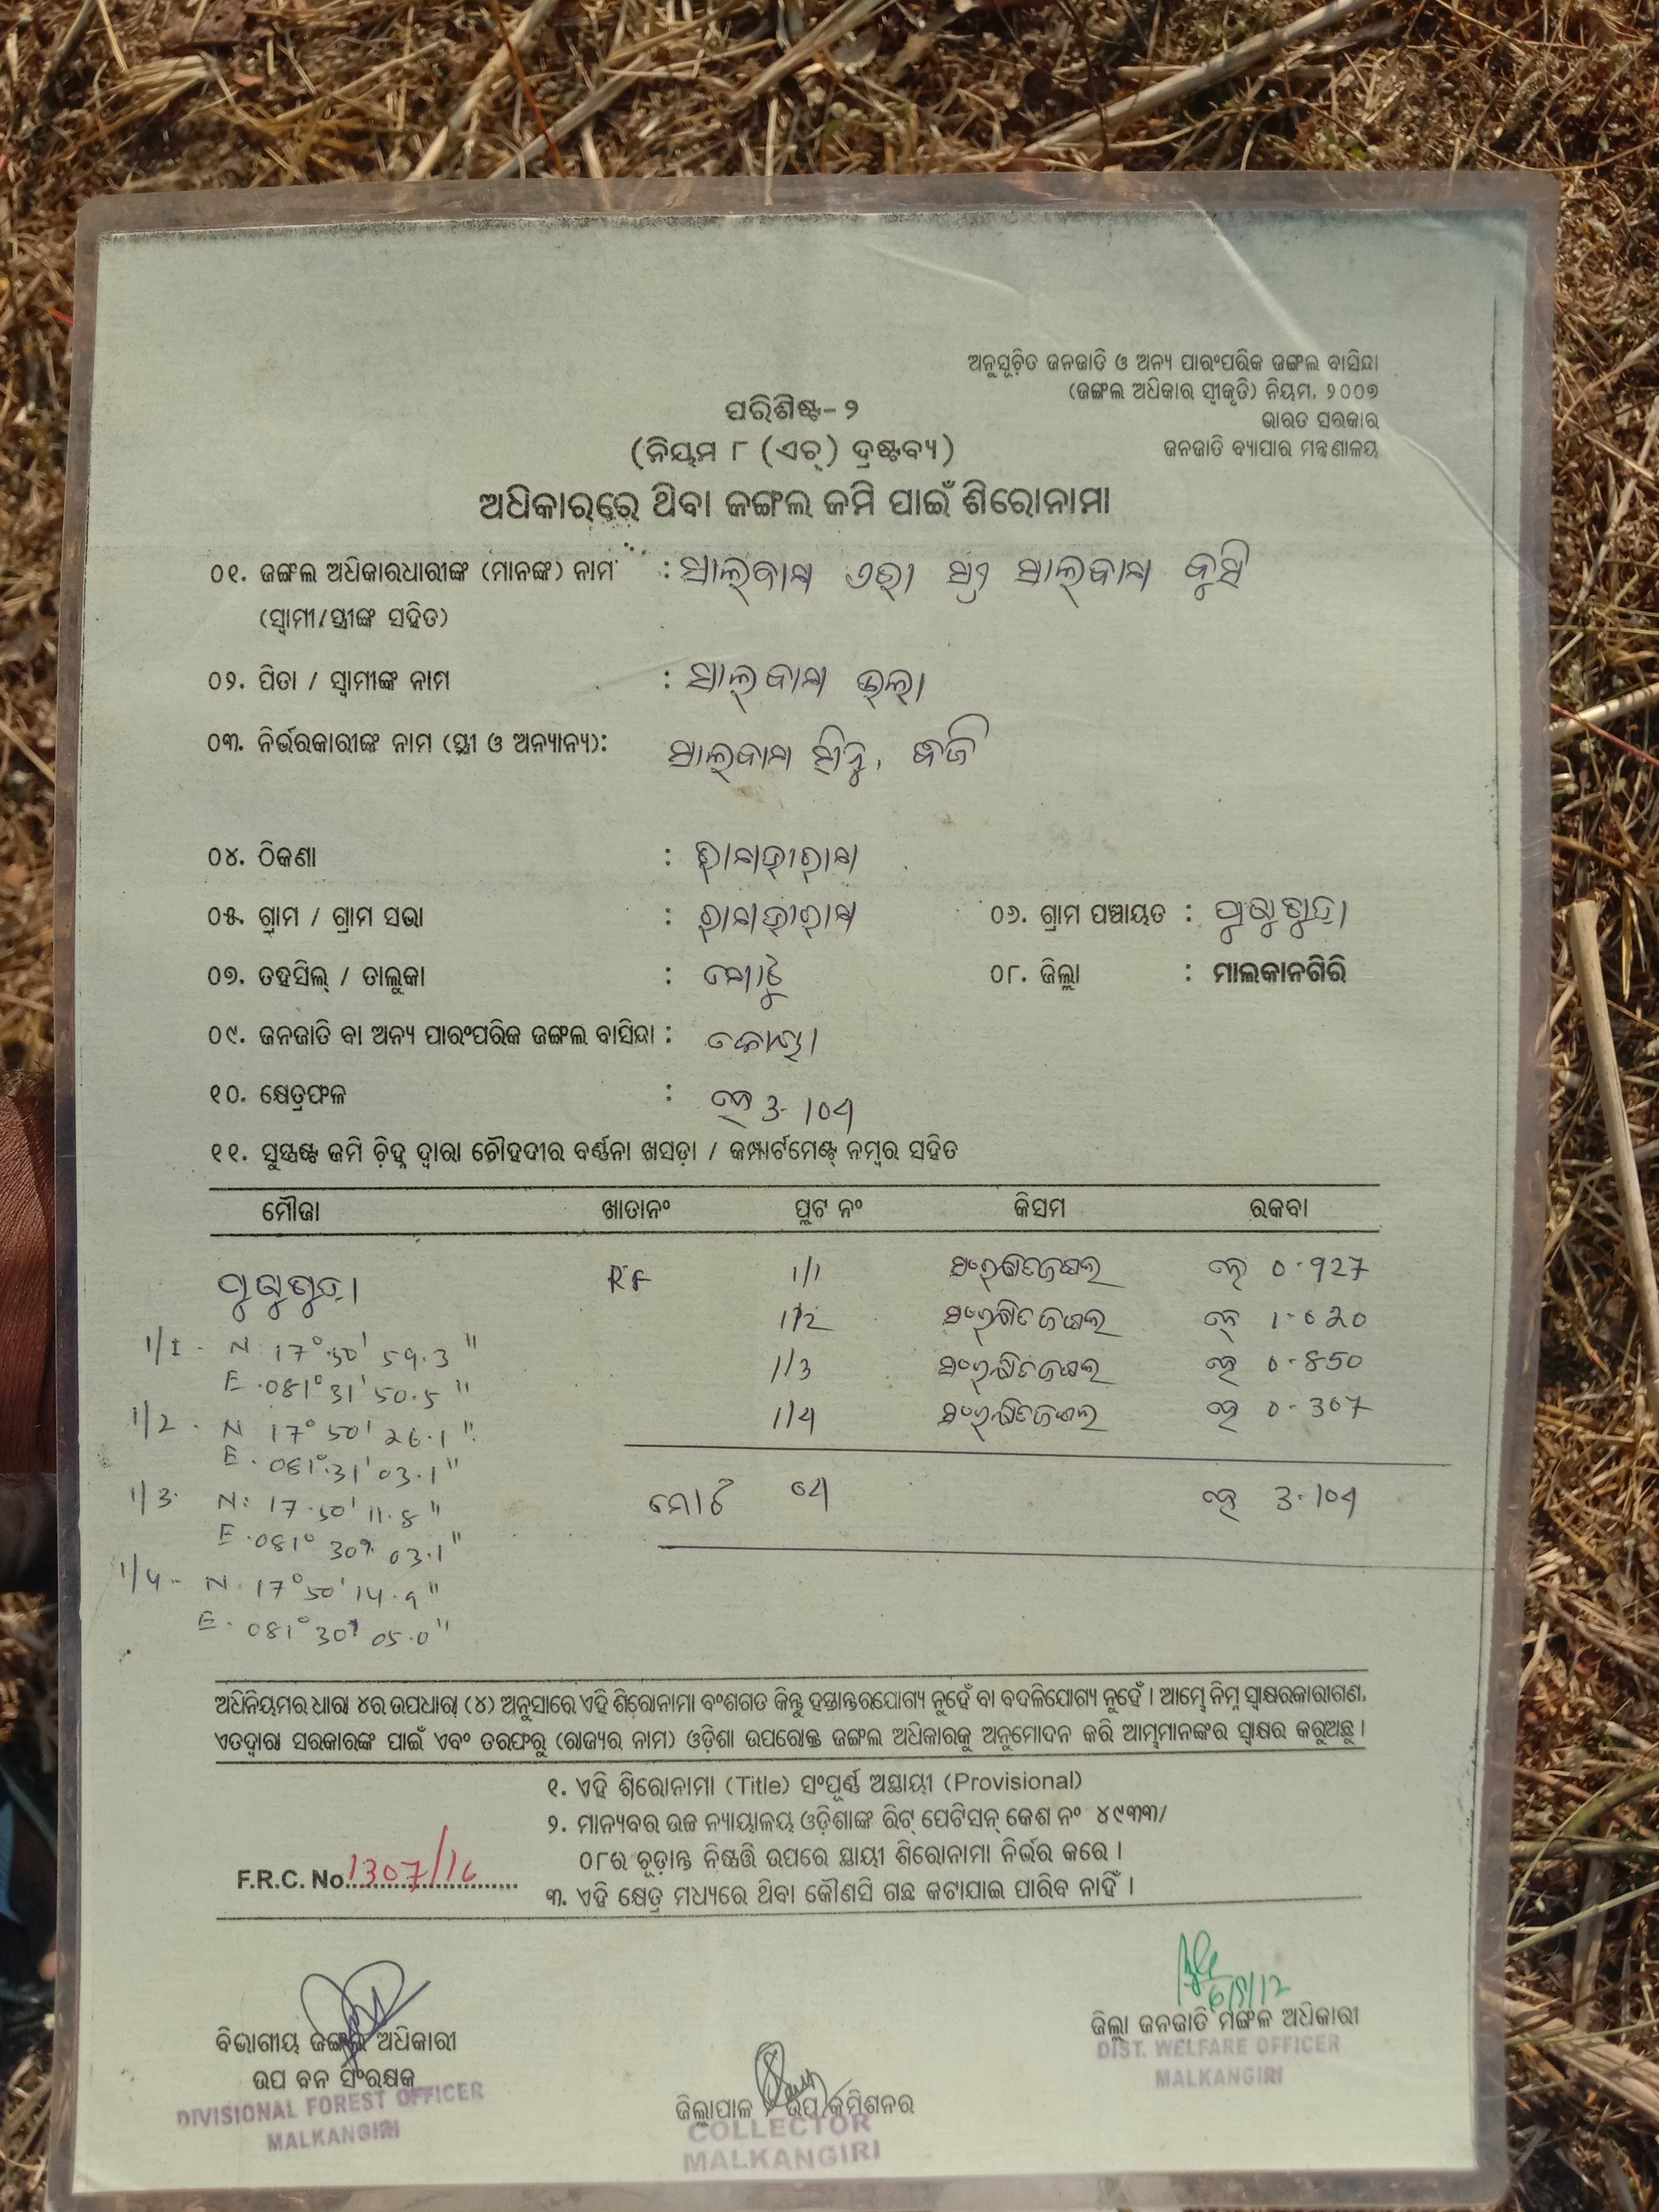 ଅନୁସୂଚିତ ଜନଜାତି ଓ ଅନ୍ୟ ପାରଂପରିକ ଜଙ୍ଗଲ ବାସିନ୍ଦା
(ଜଙ୍ଗଲ ଅଧିକାର ସ୍ୱୀକୃତି) ନିୟମ, ୨୦୦୭
ଭାରତ ସରକାର
ଜନଜାତି ବ୍ୟାପାର ମନ୍ତ୍ରଣାଳୟ
ପରିଶିଷ୍ଟ-୨
(ନିୟମ ୮ (ଏଚ୍) ଦ୍ରଷ୍ଟବ୍ୟ)
ଅଧିକାରରେ ଥିବା ଜଙ୍ଗଲ ଜମି ପାଇଁ ଶିରୋନାମା
୦୧. ଜଙ୍ଗଲ ଅଧିକାରଧାରୀଙ୍କ (ମାନଙ୍କ) ନାମ :
(ସ୍ୱାମୀ/ସ୍ତ୍ରୀଙ୍କ ସହିତ)
୦୨. ପିତା / ସ୍ୱାମୀଙ୍କ ନାମ :
୦୩. ନିର୍ଭରକାରୀଙ୍କ ନାମ (ସ୍ତ୍ରୀ ଓ ଅନ୍ୟାନ୍ୟ):
୦୪. ଠିକଣା :
୦୫. ଗ୍ରାମ / ଗ୍ରାମ ସଭା : ୦୬. ଗ୍ରାମ ପଞ୍ଚାୟତ :
୦୭. ତହସିଲ୍ / ତାଲୁକା : ମୋଟୁ ୦୮. ଜିଲ୍ଲା : ମାଲକାନଗିରି
୦୯. ଜନଜାତି ବା ଅନ୍ୟ ପାରଂପରିକ ଜଙ୍ଗଲ ବାସିନ୍ଦା : କୋୟା
୧୦. କ୍ଷେତ୍ରଫଳ : ହେ 3.104
୧୧. ସୁସ୍ପଷ୍ଟ ଜମି ଚିହ୍ନ ଦ୍ୱାରା ଚୌହଦୀର ବର୍ଣ୍ଣନା ଖସଡ଼ା / କମ୍ପାର୍ଟମେଣ୍ଟ୍ ନମ୍ବର ସହିତ
ମୌଜା ଖାତାନଂ ପ୍ଲଟ ନଂ କିସମ ରକବା
RF 1/1 ସଂରକ୍ଷିତଜଙ୍ଗଲ ହେ 0.927
1/2 ସଂରକ୍ଷିତଜଙ୍ଗଲ ହେ 1.020
1/3 ସଂରକ୍ଷିତଜଙ୍ଗଲ ହେ 0.850
1/4 ସଂରକ୍ଷିତଜଙ୍ଗଲ ହେ 0.307
ମୋଟ ହେ 3.104
1/1 - N 17° 50' 59.3"
E. 081° 31' 50.5"
1/2 - N 17° 50' 26.1"
E. 081° 31' 03.1"
1/3 N: 17.50' 11.8"
E. 081° 30' 03.1"
1/4 - N. 17° 50' 14.9"
E. 081° 30' 05.0"
ଅଧିନିୟମର ଧାରା ୪ର ଉପଧାରା (୪) ଅନୁସାରେ ଏହି ଶିରୋନାମା ବଂଶଗତ କିନ୍ତୁ ହସ୍ତାନ୍ତରଯୋଗ୍ୟ ନୁହେଁ ବା ବଦଳିଯୋଗ୍ୟ ନୁହେଁ । ଆମ୍ଭେ ନିମ୍ନ ସ୍ୱାକ୍ଷରକାରୀଗଣ,
ଏତଦ୍ୱାରା ସରକାରଙ୍କ ପାଇଁ ଏବଂ ତରଫରୁ (ରାଜ୍ୟର ନାମ) ଓଡ଼ିଶା ଉପରୋକ୍ତ ଜଙ୍ଗଲ ଅଧିକାରକୁ ଅନୁମୋଦନ କରି ଆମ୍ଭମାନଙ୍କର ସ୍ୱାକ୍ଷର କରୁଅଛୁ ।
୧. ଏହି ଶିରୋନାମା (Title) ସଂପୂର୍ଣ୍ଣ ଅସ୍ଥାୟୀ (Provisional)
୨. ମାନ୍ୟବର ଉଚ୍ଚ ନ୍ୟାୟାଳୟ ଓଡ଼ିଶାଙ୍କ ରିଟ୍ ପେଟିସନ୍ କେଶ ନଂ ୪୯୩୩/
୦୮ର ଚୂଡ଼ାନ୍ତ ନିଷ୍ପତ୍ତି ଉପରେ ସ୍ଥାୟୀ ଶିରୋନାମା ନିର୍ଭର କରେ ।
F.R.C. No. 1307/16
୩. ଏହି କ୍ଷେତ୍ର ମଧ୍ୟରେ ଥିବା କୌଣସି ଗଛ କଟାଯାଇ ପାରିବ ନାହିଁ ।
6/8/12
ବିଭାଗୀୟ ଜଙ୍ଗଲ ଅଧିକାରୀ
ଉପ ବନ ସଂରକ୍ଷକ
DIVISIONAL FOREST OFFICER
MALKANGIRI
ଜିଲ୍ଲାପାଳ / ଉପ କମିଶନର
COLLECTOR
MALKANGIRI
ଜିଲ୍ଲା ଜନଜାତି ମଙ୍ଗଳ ଅଧିକାରୀ
DIST. WELFARE OFFICER
MALKANGIRI